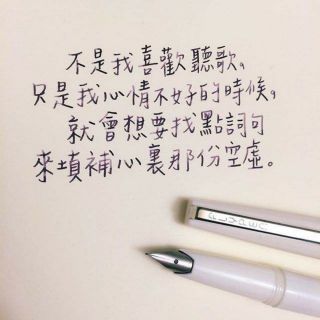 不是我喜歡聽歌，
只是我心情不好的時候，
就會想要找點詞句
來填補心裏那份空虛。